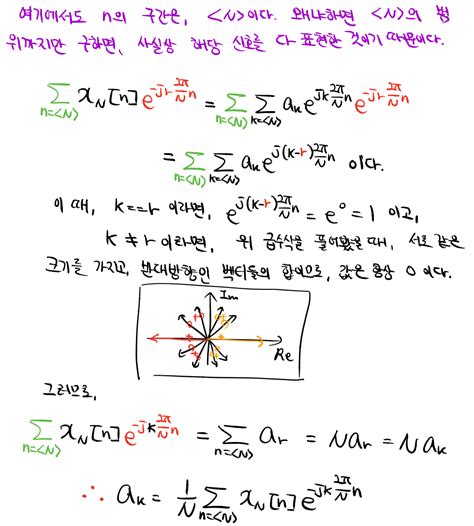 여기에서도 n의 구간은, <N>이다. 왜냐하면 <N>의 범
위까지만 구하면, 사실상 해당 신호를 다 표현한 것이기 때문이다.
∑_{n=<N>} x_N[n] e^{-jr(2π/N)n} = ∑_{n=<N>} ∑_{k=<N>} a_k e^{jk(2π/N)n} e^{-jr(2π/N)n}
= ∑_{n=<N>} ∑_{k=<N>} a_k e^{j(k-r)(2π/N)n} 이다.
이 때, k==r 이라면, e^{j(k-r)(2π/N)n} = e^0 = 1 이고,
k ≠ r 이라면, 위 급수식을 풀어봤을 때, 서로 같은
크기를 가지고, 반대방향인 벡터들의 합이므로, 값은 항상 0 이다.
Im
Re
그러므로,
∑_{n=<N>} x_N[n] e^{-jk(2π/N)n} = ∑_{n=<N>} a_r = Na_r = Na_k
∴ a_k = 1/N ∑_{n=<N>} x_N[n] e^{-jk(2π/N)n}